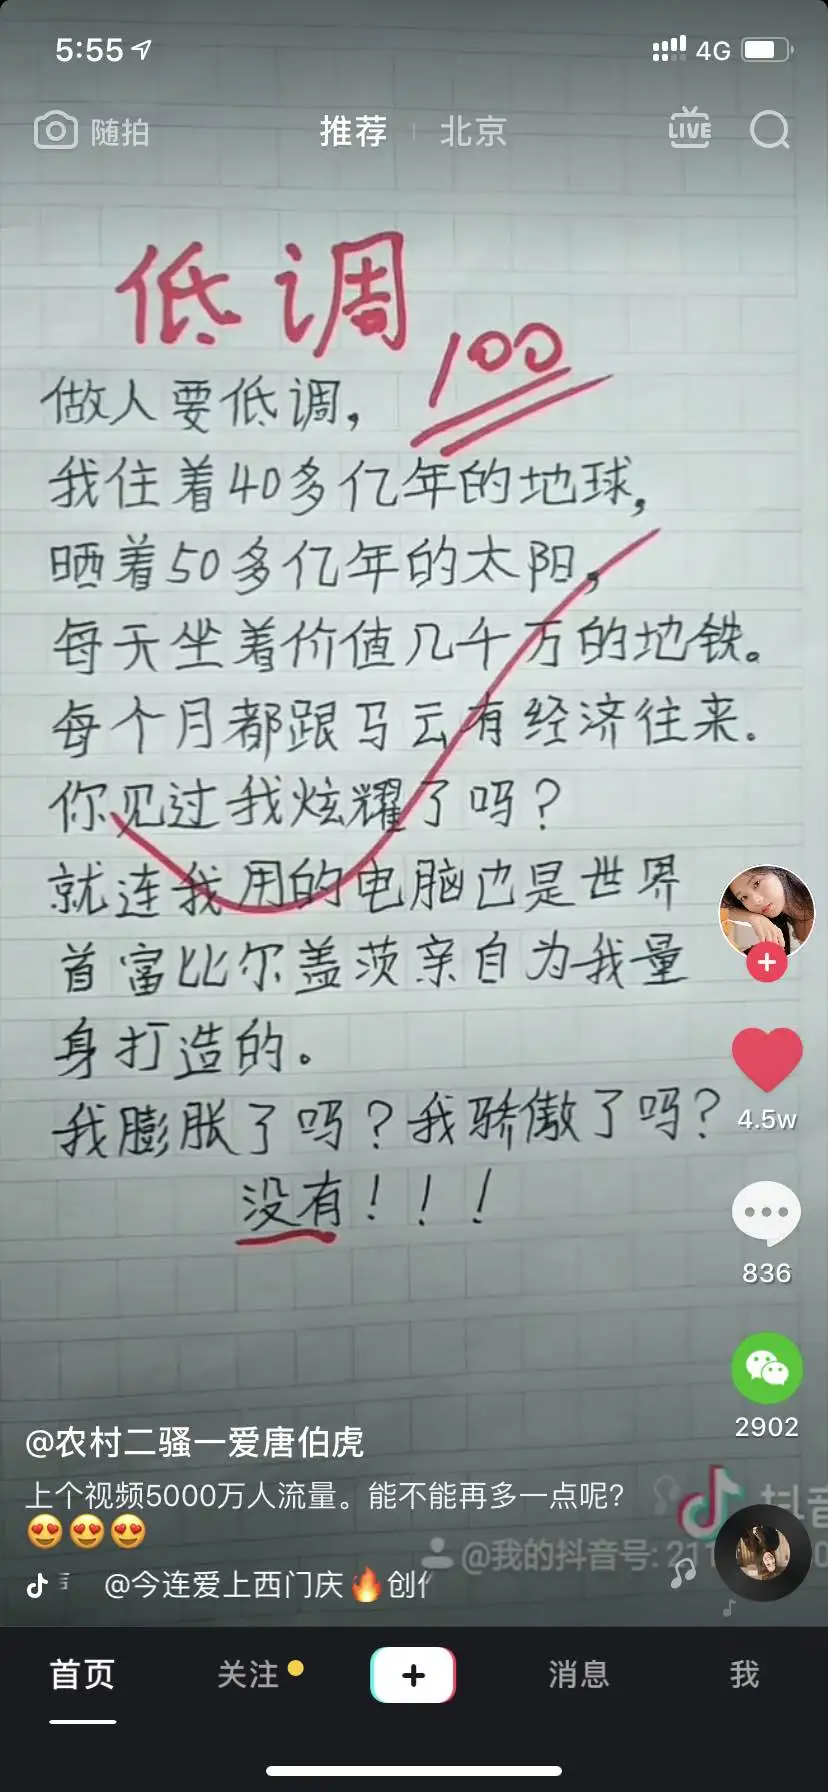 5:55
4G
随拍
推荐
北京
LIVE
低调
100
做人要低调,
我住着40多亿年的地球,
晒着50多亿年的太阳,
每天坐着价值几千万的地铁。
每个月都跟马云有经济往来.
你见过我炫耀了吗?
就连我用的电脑也是世界
首富比尔盖茨亲自为我量
身打造的。
我膨胀了吗?我骄傲了吗?
没有!!!
4.5w
836
2902
@农村二骚一爱唐伯虎
上个视频5000万人流量。能不能再多一点呢?
😍😍😍
抖音
@我的抖音号: 211
@今连爱上西门庆🔥创作
首页
关注
消息
我